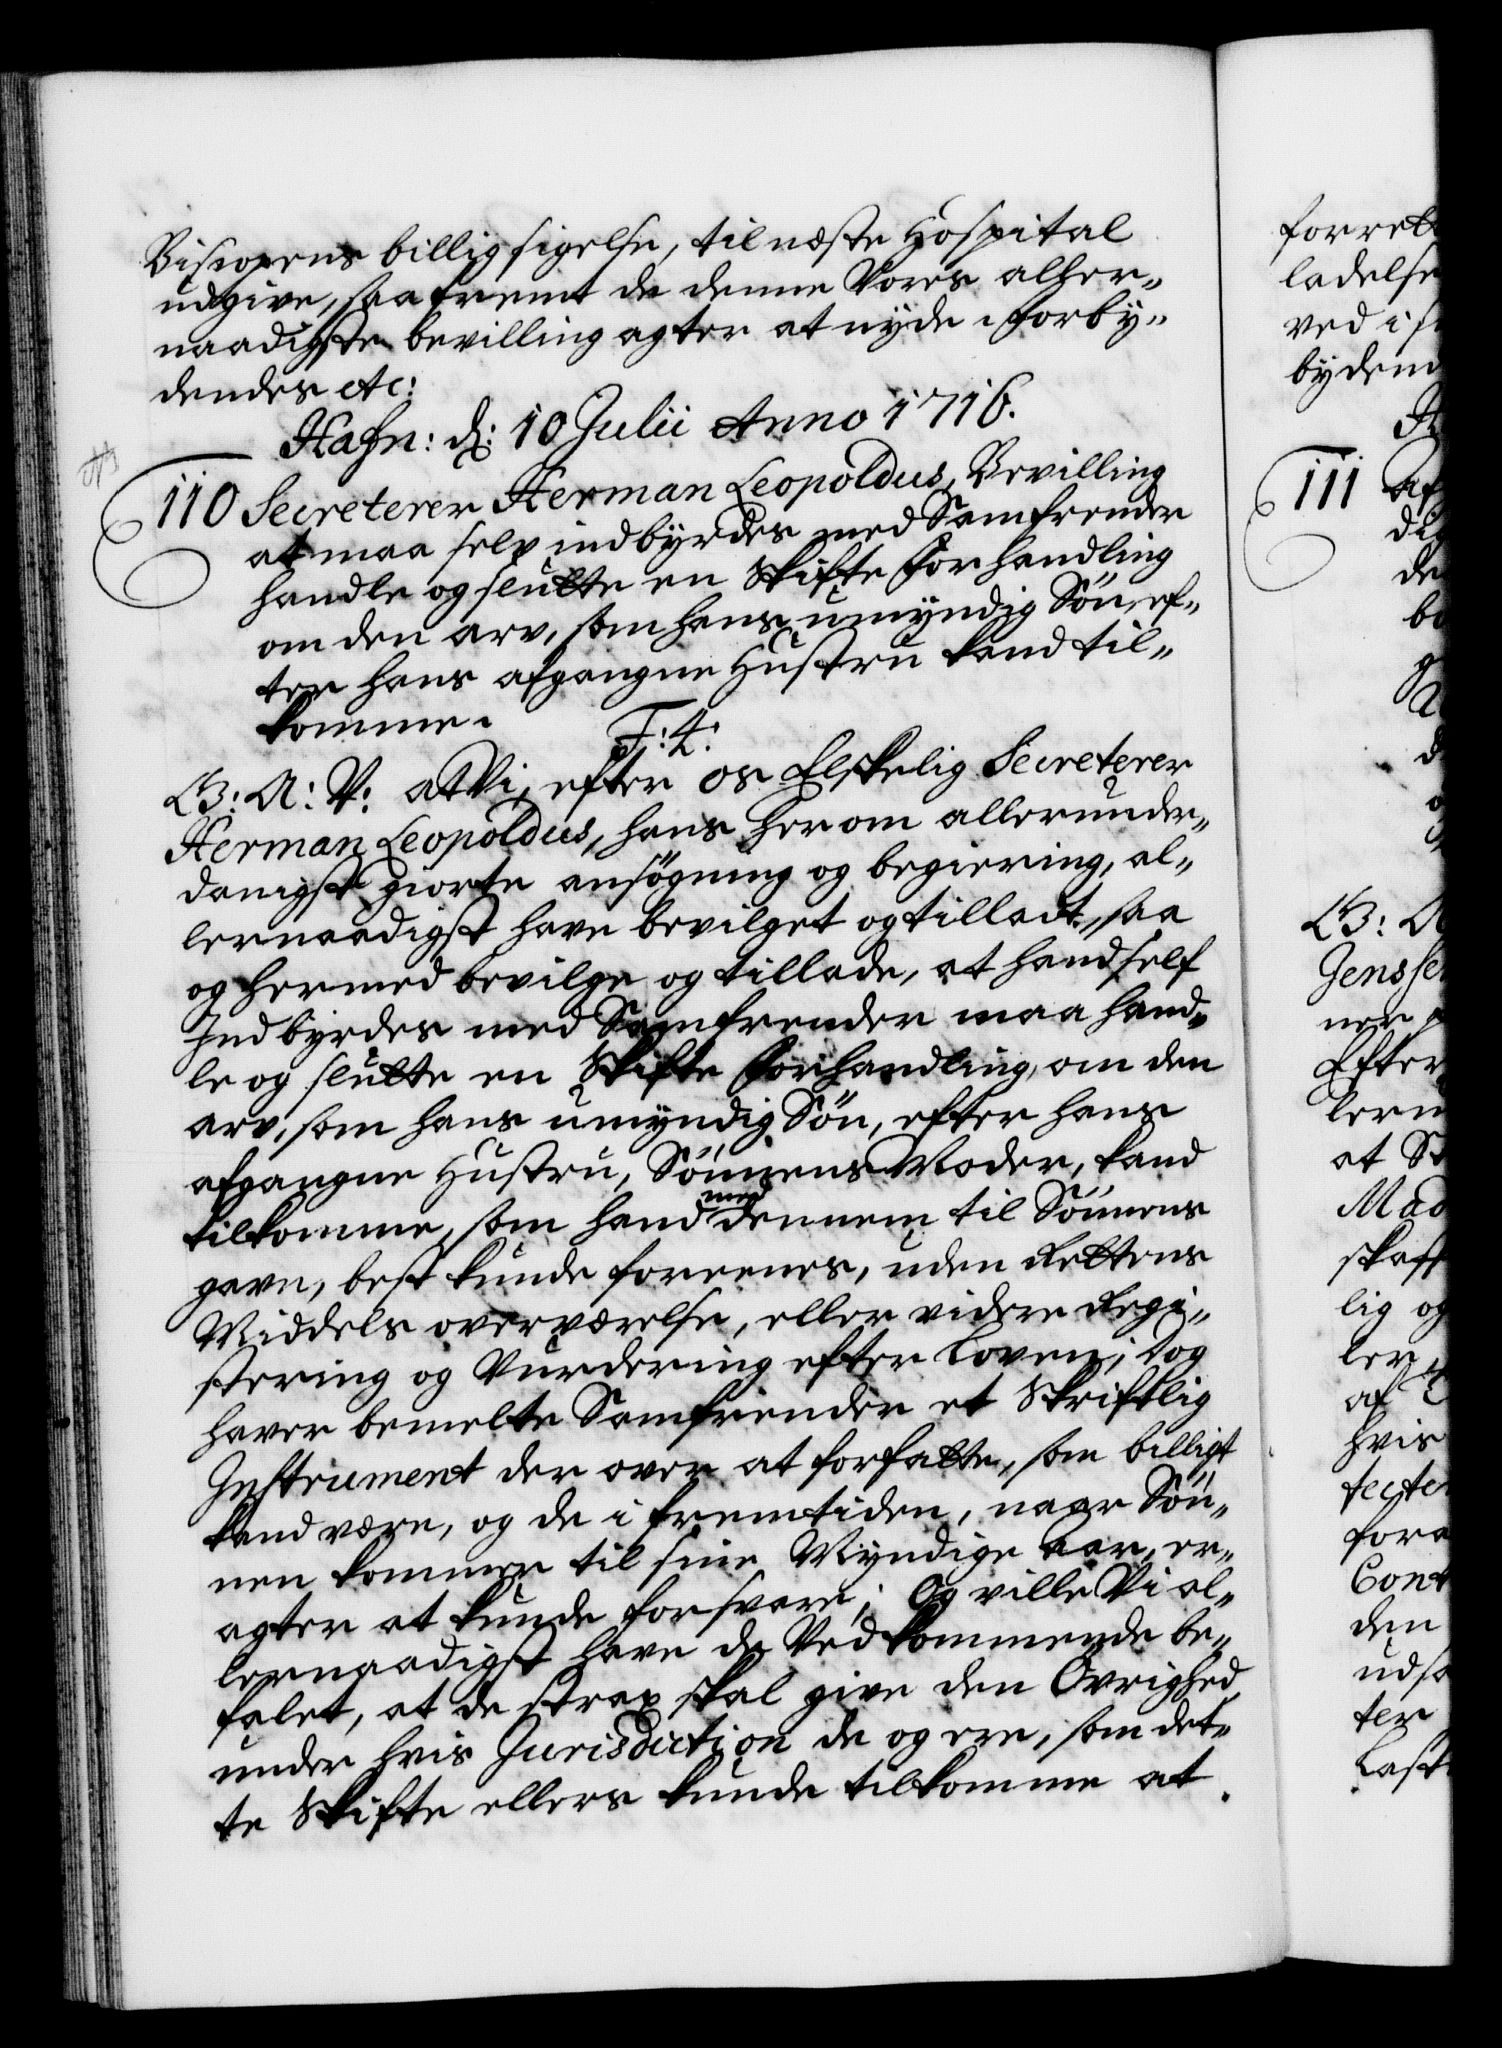 Biscopens billig sigelse, til næste Hospital
udgive, saafremt de denne Vores aller-
naadigste bevilling agter at nyde. Forby-
dendes etc:
Hafn: d: 10 Julii Anno 1716.
110 Secreterer Herman Leopoldus, Bevilling
at maa selv indbyrdes med Samfrender
handle og slutte en Skifte Forhandling
om den arv, som hans umyndig Søn, ef-
ter hans afgangne Hustru kand til-
komme.
F: 4:
G: A: V: at Vi, efter os Elskelig Secreterer
Herman Leopoldus, hans herom allerunder-
danigst giorte ansøgning og begiering, al-
lernaadigst have bevilget og tilladt, saa
og hermed bevilge og tillade, at hand self
Indbyrdes med Samfrender maa hand-
le og slutte en Skifte Forhandling, om den
arv, som hans umyndig Søn, efter hans
afgangne Hustru, Sønnens Moder, kand
tilkomme, som hand med dennem til Sønnens
gavn, best kunde foreenes, uden Rettens
Middels overværelse, eller videre Regi-
stering og Vurdering efter Loven; dog
haver bemelte Samfrender et Skriftlig
Instrument der over at forfatte, som billigt
kand være, og de i fremtiden, naar Søn-
nen kommer til sine Myndige Aar, er-
agter at kunde forsvare; Og ville Vi al-
lernaadigst have de Vedkommende be-
falet, at de strax skal give den Øvrighed,
under hvis Jurisdiction de og ere, som det-
te Skifte ellers kunde tilkomme at
forrett
ladelse
ved i
bydend
111
de
G: A
Jenssen
ner
Efter
lern
at
Mad
skaff
lig og
ler
af
hvis
fora
Cont
den
udsa
ter